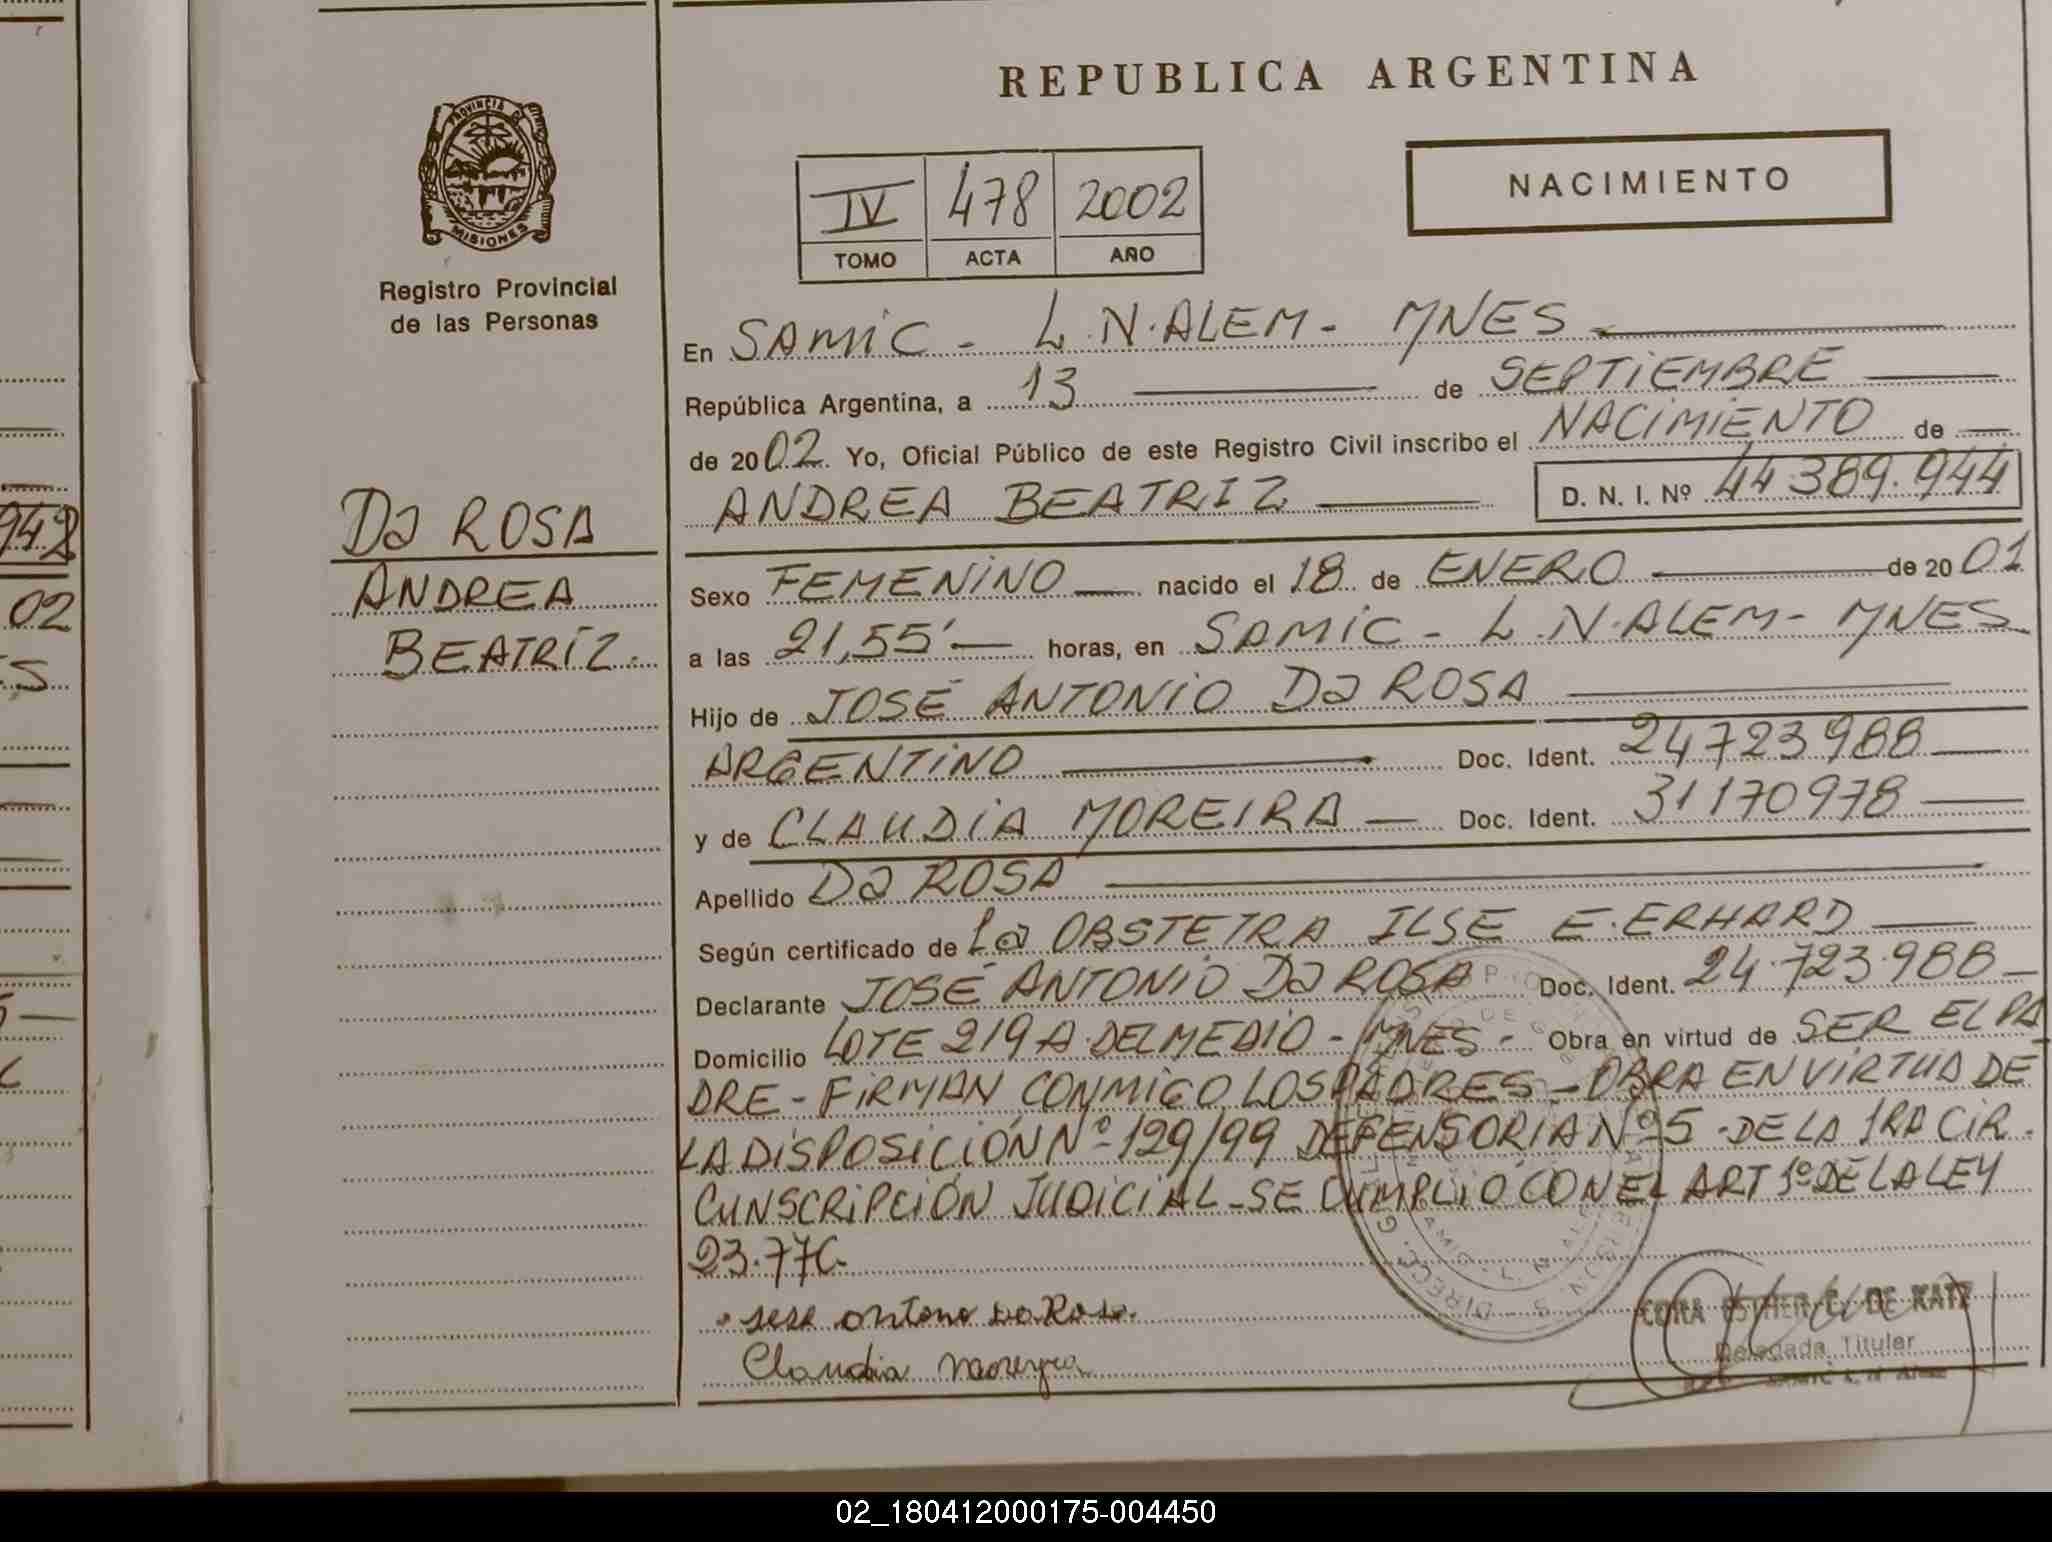 REPUBLICA ARGENTINA
PROVINCIA DE
MISIONES
Registro Provincial
de las Personas
IV 478 2002
TOMO ACTA AÑO
NACIMIENTO
En SAMIC - L.N.ALEM - MNES
República Argentina, a 13 de SEPTIEMBRE
de 2002 Yo, Oficial Público de este Registro Civil inscribo el NACIMIENTO de
ANDREA BEATRIZ D. N. I. Nº 44 389.944
Da ROSA
ANDREA
BEATRIZ.
Sexo FEMENINO nacido el 18 de ENERO de 2001
a las 21,55' horas, en SAMIC - L.N.ALEM - MNES
Hijo de JOSÉ ANTONIO Da ROSA
ARGENTINO Doc. Ident. 24723988
y de CLAUDIA MOREIRA Doc. Ident. 31170978
Apellido Da ROSA
Según certificado de La OBSTETRA ILSE E. ERHARD
Declarante JOSÉ ANTONIO Da ROSA Doc. Ident. 24.723.988
Domicilio LOTE 219 A. DEL MEDIO - MNES - Obra en virtud de SER EL PA
DRE - FIRMAN CONMIGO LOS PADRES - OBRA EN VIRTUD DE
LA DISPOSICIÓN Nº 129/99 DEFENSORIA Nº 5 - DE LA 1RA CIR.
CUNSCRIPCIÓN JUDICIAL - SE CUMPLIÓ CON EL ART 1º DE LA LEY
23.776.
Claudia Moreyra
CORA ESTHER C. DE KATZ
Delegada Titular
942
02
02_180412000175-004450